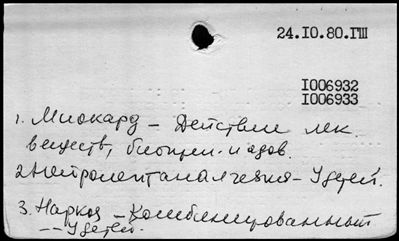 24.IO.80.ГШ
I006932
I006933
1. Миокард – Действие лек.
веществ, биопреп. и ядов.
2. Нейролептаналгезия – У детей.
3. Наркоз – Комбинированный
-- У детей.